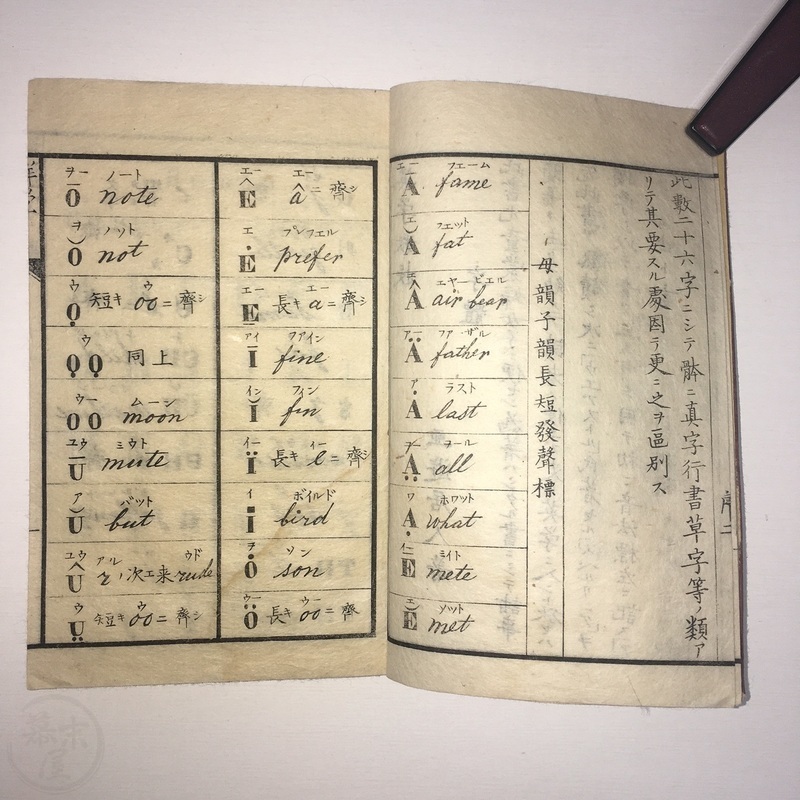 此數二十六字ニシテ骵ニ真字行書草字等ノ類ア
リテ其要スル處因テ更ニ之ヲ區別ス
母韻子韻長短發聲標
エー フェーム
Ā fame
エ フエット
Ă fat
エヤー ビエル
Â air bear
アー ファザル
Ä father
ア ラスト
Ȧ last
ヲール
A̤ all
ワ ホワット
Ạ what
イー ミイト
Ē mete
エ メット
Ĕ met
エー エー
Ê â=齊シ
エ プレフエル
Ė prefer
エー エー
E̱ 長キ a=齊シ
アイ ファイン
Ī fine
イン フィン
Ĭ fin
イー イー
Ï 長キ e=齊シ
イ ボイルド
İ bird
ヲ ソン
Ȯ son
ウー ウー
Ö 長キ oo=齊
ヲー ノート
Ō note
ヲ ノット
Ŏ not
ウ ウ
Ọ 短キ oo=齊シ
ウ
ỌỌ 同上
ウー ムーン
OO moon
ユウ ミウト
Ū mute
ア バット
Ŭ but
ユウ アル ウド
Û r ノ次エ来 rude
ウ ウ
Ṳ 短キ oo=齊シ
序二